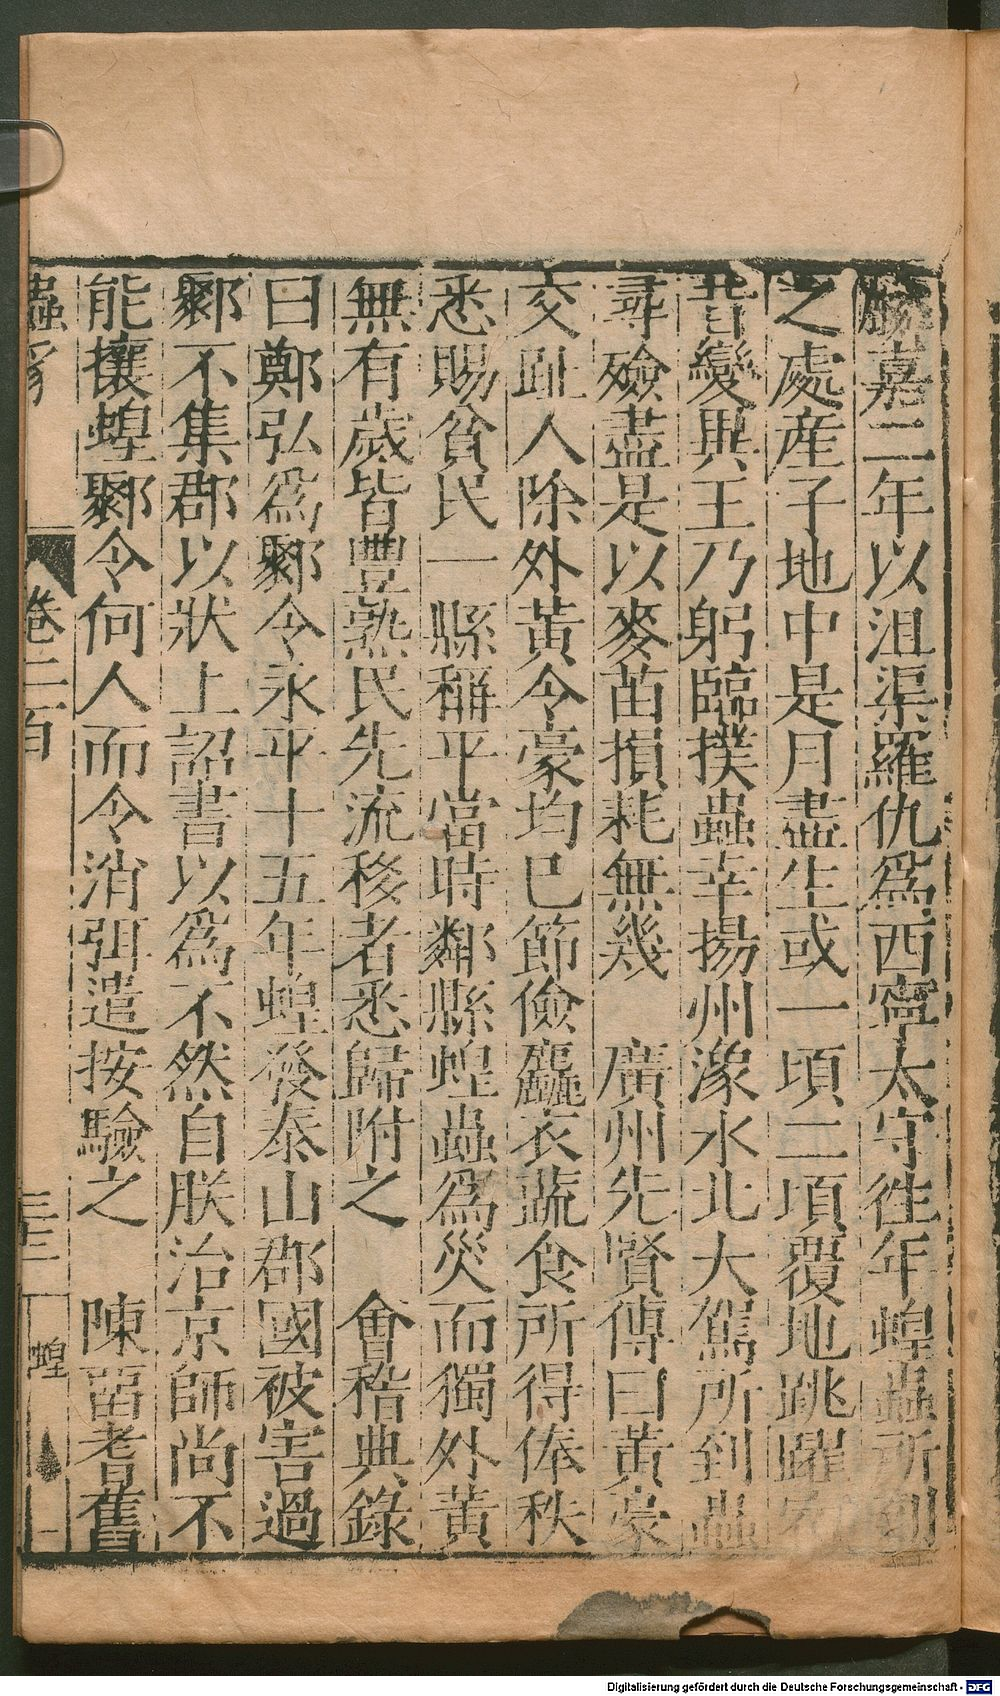 嘉二年以沮渠羅仇爲西寧太守往年蝗蟲所到
之處產子地中是月盡生或一頃二頃覆地跳躍
變異王乃躬臨撲蟲幸揚州潒水北大駕所到蟲
尋殮盡是以麥苗損耗無幾　廣州先賢傳曰黃豪
交趾人除外黃令豪均巳節儉麤衣蔬食所得俸秩
悉賜貧民一縣稱平當時鄰縣蝗蟲爲災而獨外黃
無有歲皆豐熟民先流移者悉歸附之　會稽典錄
曰鄭弘爲鄹令永平十五年蝗發泰山郡國被害過
鄹不集郡以狀上詔書以爲不然自朕治京師尚不
能攘蝗鄹令何人而令消弭遣按驗之　陳留耆舊
蟲豸
卷二百
三十三
蝗
Digitalisierung gefördert durch die Deutsche Forschungsgemeinschaft - DFG